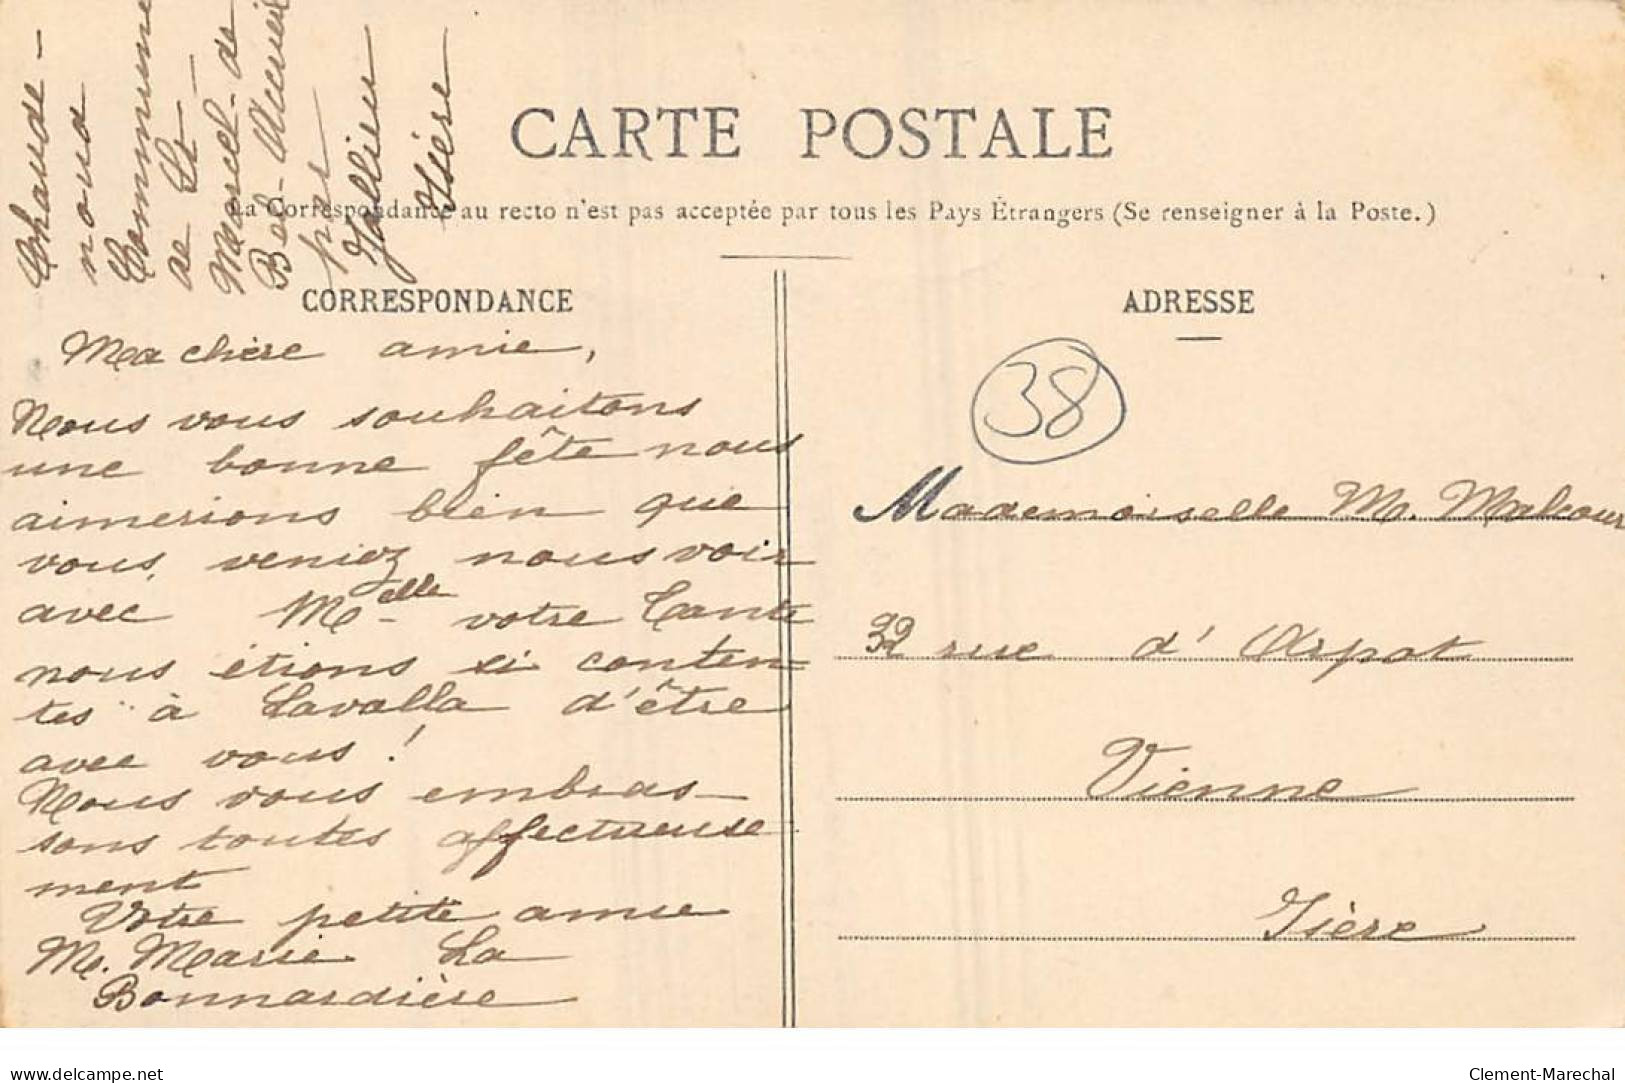 Chaude-
noud
Commune
de St-
Marcel-de
Bel-Accueil
par
Jallieu
Isère
CARTE POSTALE
La Correspondance au recto n'est pas acceptée par tous les Pays Étrangers (Se renseigner à la Poste.)
CORRESPONDANCE
Ma chère amie,
Nous vous souhaitons
une bonne fête nous
aimerions bien que
vous veniez nous voir
avec Melle votre Tante
nous étions si conten-
tes à Lavalla d'être
avec vous!
Nous vous embras-
sons toutes affectueuse
ment
Votre petite amie
M. Marie La
Bonnardière
ADRESSE
38
Mademoiselle M. Malcour
32 rue d'Arpot
Vienne
Isère
www.delcampe.net
Clement-Marechal